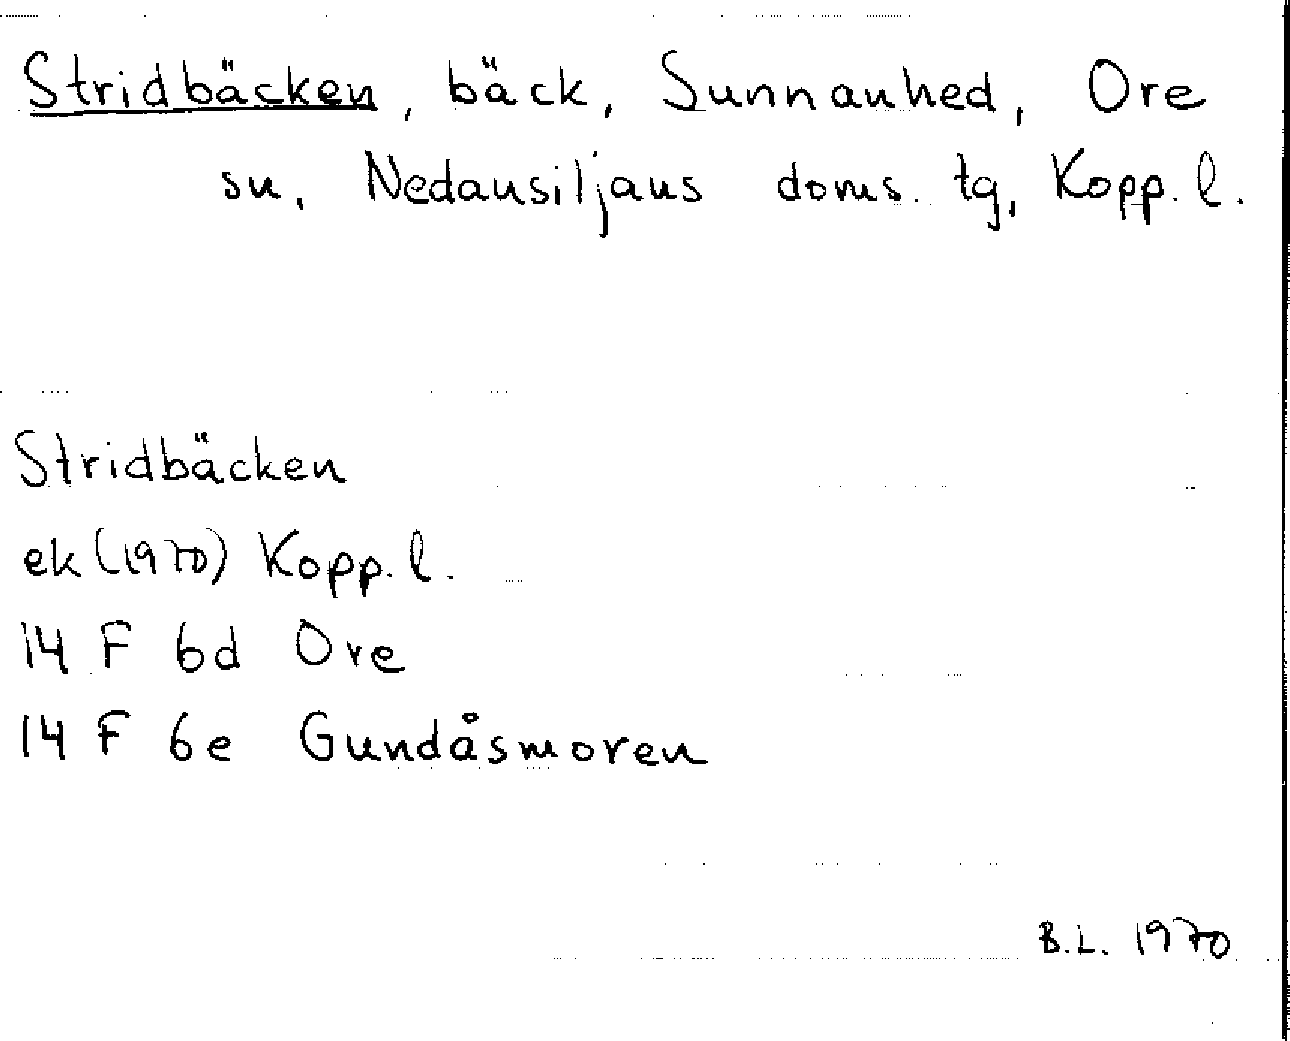 Stridbäcken, bäck, Sunnanhed, Ore
sn, Nedansiljans doms. tg, Kopp. l.
Stridbäcken
ek (1970) Kopp. l.
14 F 6d Ore
14 F 6e Gundåsmoren
B.L. 1970